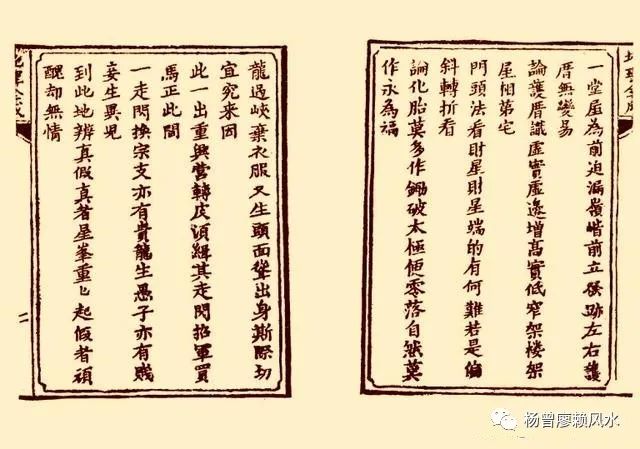 一堂屋為前迫漏嶺前立跡左右護
厝無變易
論護厝識虛實虛邊增高實低窄架楼架
屋相第宅
門頭法看財星財星端的有何難若是偏
斜轉折看
論化胎莫多作鋤破太極便零落自然莫
作永為福
龍過峽棄衣服又生頭面聳出身斯際切
宜究来因
此一出重興营轉皮須緝其走閃招軍買
馬正此間
一走閃換宗支亦有貴龍生愚子亦有賤
妾生異児
到此地辨真假真者星峯重〻起假者頑
醒却無情
二
杨曾廖赖风水